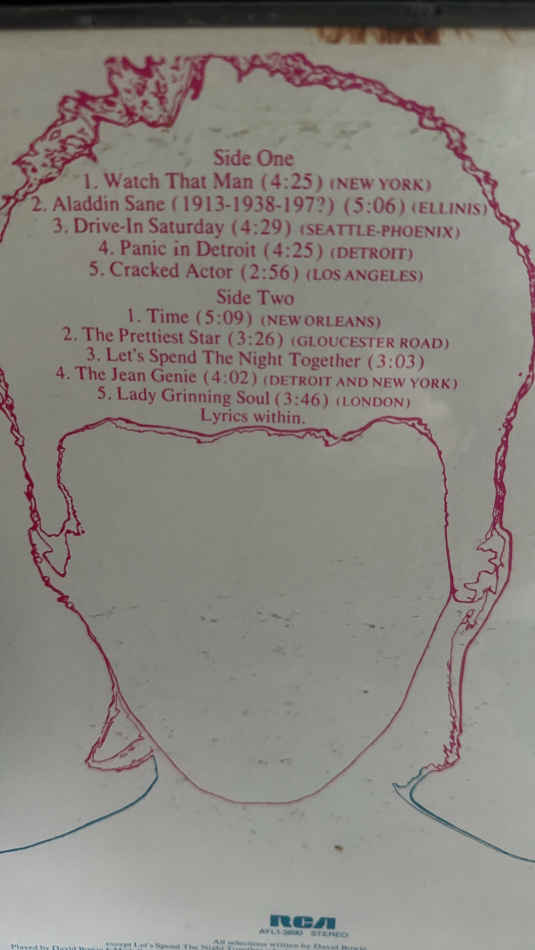 Side One
1. Watch That Man (4:25) (NEW YORK)
2. Aladdin Sane (1913-1938-197?) (5:06) (ELLINIS)
3. Drive-In Saturday (4:29) (SEATTLE-PHOENIX)
4. Panic in Detroit (4:25) (DETROIT)
5. Cracked Actor (2:56) (LOS ANGELES)
Side Two
1. Time (5:09) (NEW ORLEANS)
2. The Prettiest Star (3:26) (GLOUCESTER ROAD)
3. Let's Spend The Night Together (3:03)
4. The Jean Genie (4:02) (DETROIT AND NEW YORK)
5. Lady Grinning Soul (3:46) (LONDON)
Lyrics within.
RCA
AFL1-3890 STEREO
All selections written by David Bowie
except Let's Spend The Night Together
Played by David Bowie